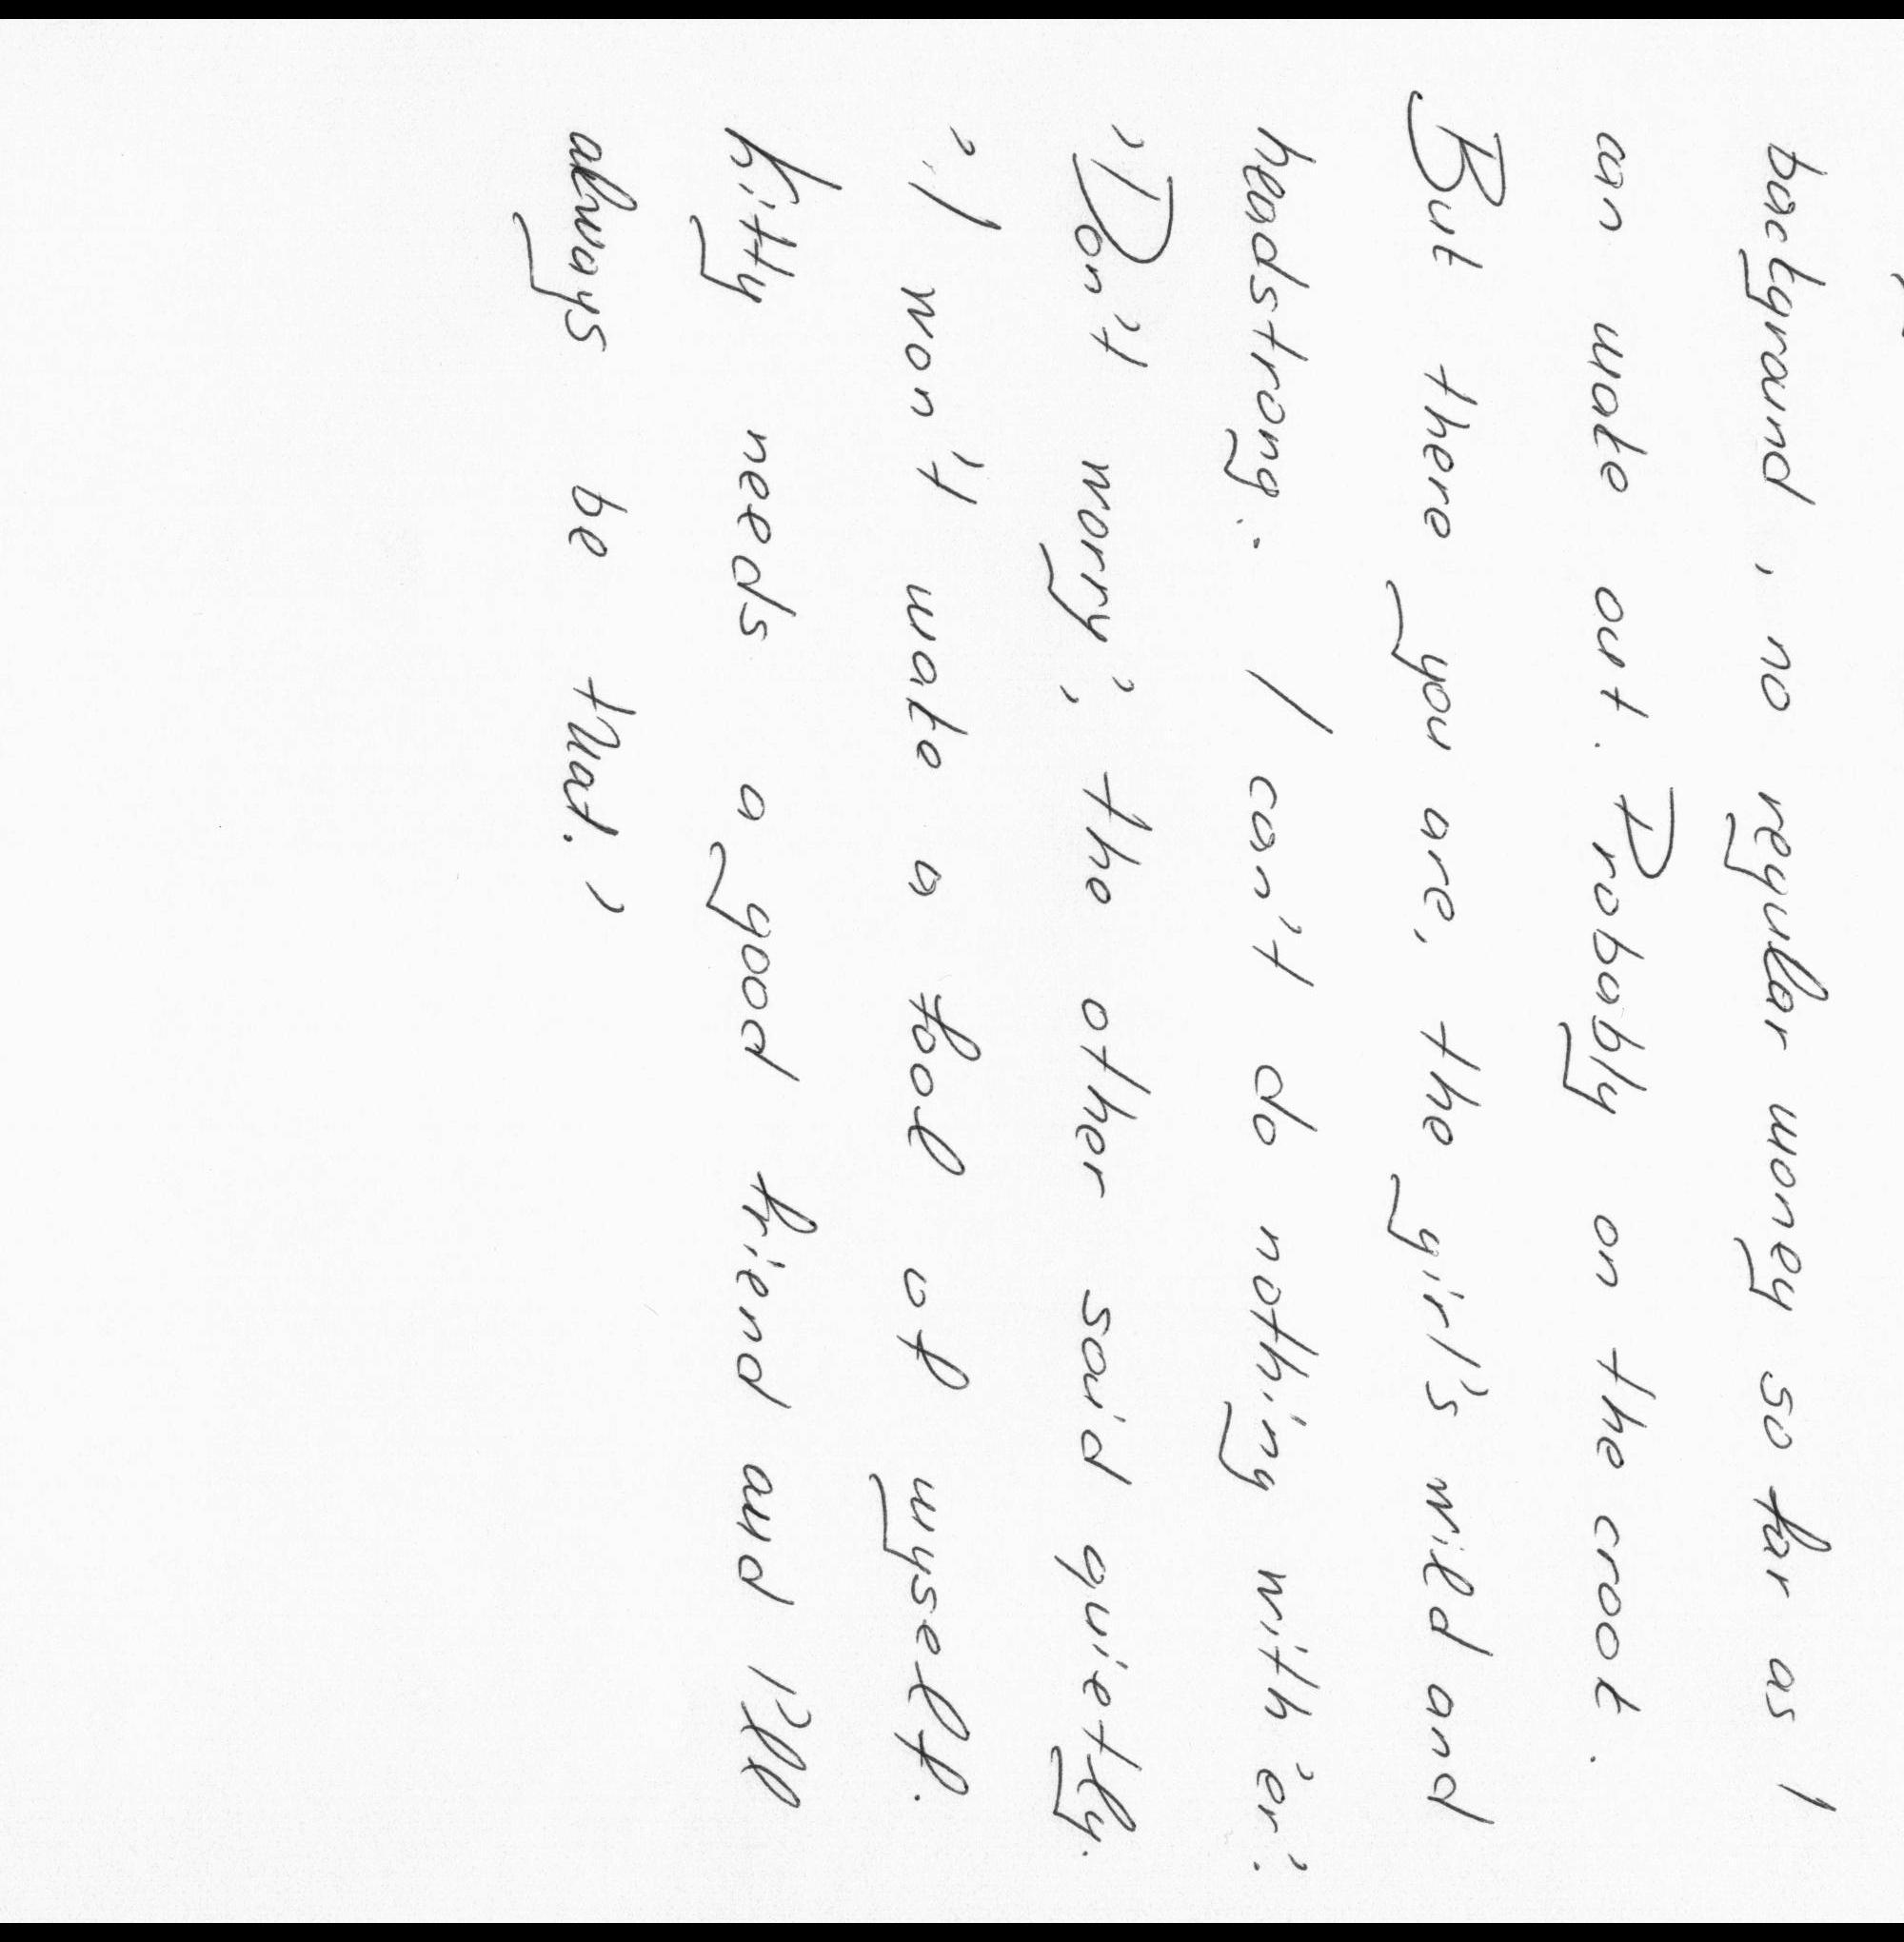 background, no regular money so far as I
can make out. Probably on the crook.
But there you are, the girl's wild and
headstrong. I can't do nothing with 'er.'
'Don't worry,' the other said quietly.
'I won't make a fool of myself.
Kitty needs a good friend and I'll
always be that.'